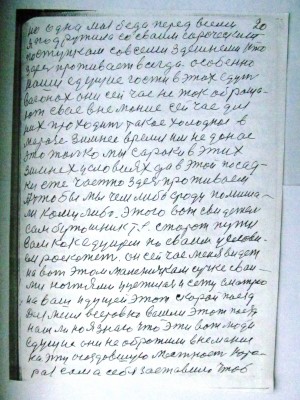 но одна моя беда перед всеми 20
я подружился со своим сорочечкам
поступкам со всеми здешними кто
здесь проживает всегда. особенно
наши едущие гости в этих едут
вагонах они сейчас не так обраща-
ют своё внимание сейчас для
них проходит такое холодное в
морозе зимнее время им не до нас
это только мы сароки в этих
зимних условиях да в этой посад-
ки сте часто здесь проживаем
А чтобы мы чем либо вроду помеша-
ли кому либо. Этого вот свидетель
сам бутошник т.е. сторож путей
сам как дежурим по своим услови-
ям расскажет. он сейчас меня видет
на вот этом маленичкам сучке сваи-
ми ногтями уцепился и сету смотрю
на вам идущей этот скорай поезд
Для меня всеровно вашим этот поезд
нашли но я знаю что эти вот люди
едущия они не обротили внемания
на эту создовшую мастност кора-
рая сама себя заставила чтоб